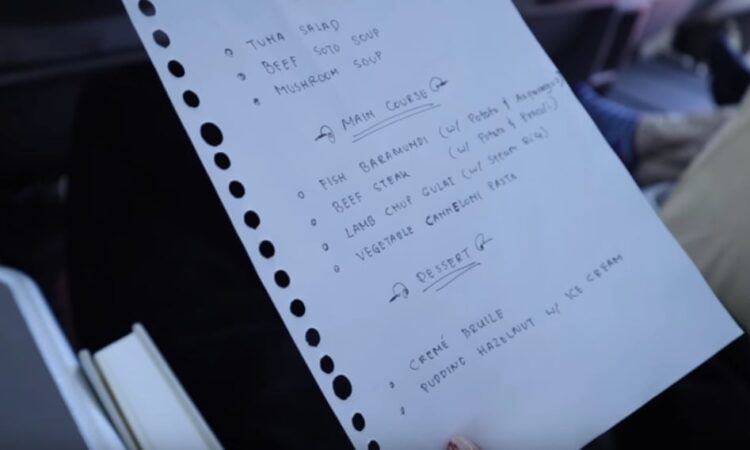 TUNA SALAD
BEEF SOTO SOUP
MUSHROOM SOUP
MAIN COURSE
FISH BARAMUNDI (w/ Potato & Asparagus)
BEEF STEAK (w/ Potato & Brocoli)
LAMB CHOP GULAI (w/ Steam Rice)
VEGETABLE CANNELONI PASTA
DESSERT
CREMÉ BRULLE
PUDDING HAZELNUT w/ ICE CREAM